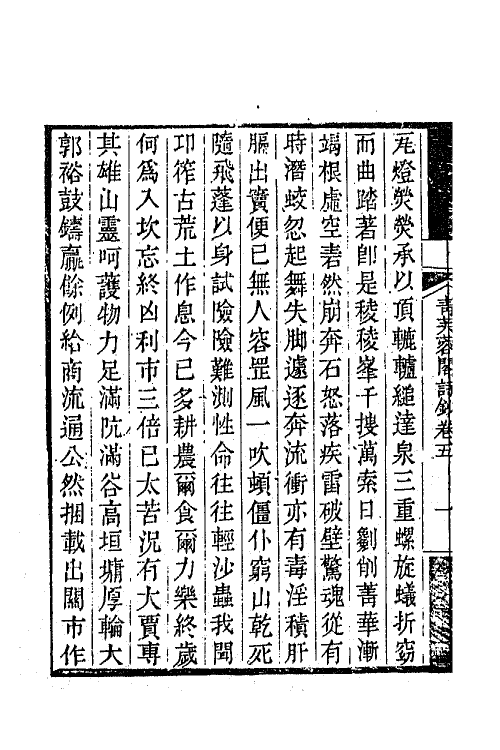 青芙蓉閣詩鈔卷五 一
瓦燈熒熒承以頂轆轤縋達泉三重螺旋蟻折窈
而曲踏著卽是稜稜峯千搜萬索日劖削菁華漸
竭根虛空砉然崩奔石怒落疾雷破壁驚魂從有
時潛蛟忽起舞失脚遽逐奔流衝亦有毒淫積肝
膈出竇便已無人容罡風一吹頓僵仆窮山乾死
隨飛蓬以身試險險難測性命往往輕沙蟲我聞
卭筰古荒土作息今已多耕農爾食爾力樂終歲
何爲入坎忘終凶利市三倍已太苦況有大賈專
其雄山靈呵護物力足滿阬滿谷高垣墉厚輪大
郭裕鼓鑄羸餘例給商流通公然捆載出關市作